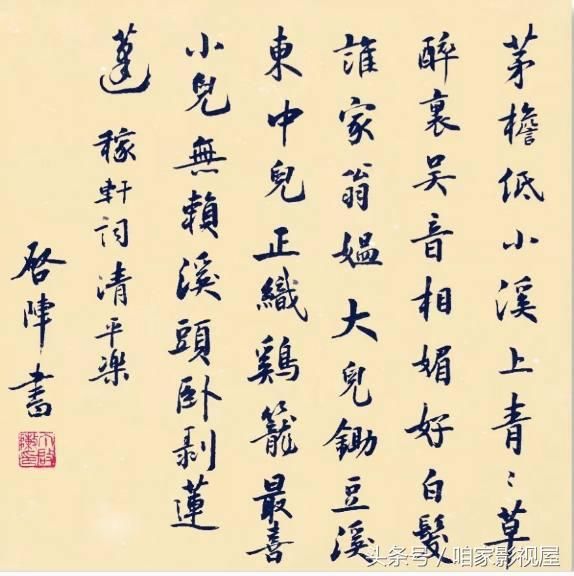 茅檐低小溪上青〻草
醉裏吴音相媚好白髮
誰家翁媼大兒鋤豆溪
東中兒正織鷄籠最喜
小兒無賴溪頭卧剥蓮
蓬 稼軒詞清平樂
啓陣書
头条号 / 咱家影视屋